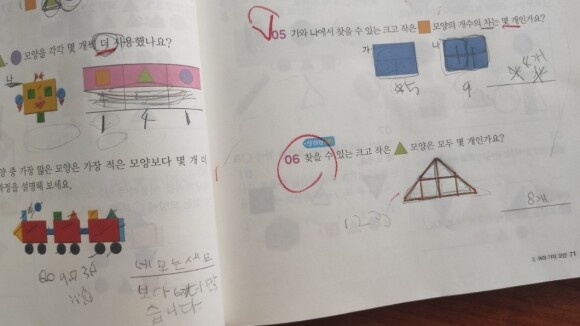 모양을 각각 몇 개씩 더 사용했나요?
1 4 1
양 중 가장 많은 모양은 가장 적은 모양보다 몇 개 더
과정을 설명해 보세요.
네모는 세모
보다 6개 더 많
습니다
05 가와 나에서 찾을 수 있는 크고 작은 모양의 개수의 차는 몇 개인가요?
가
나
5
9
06 찾을 수 있는 크고 작은 모양은 모두 몇 개인가요?
1 2 3
8개
71